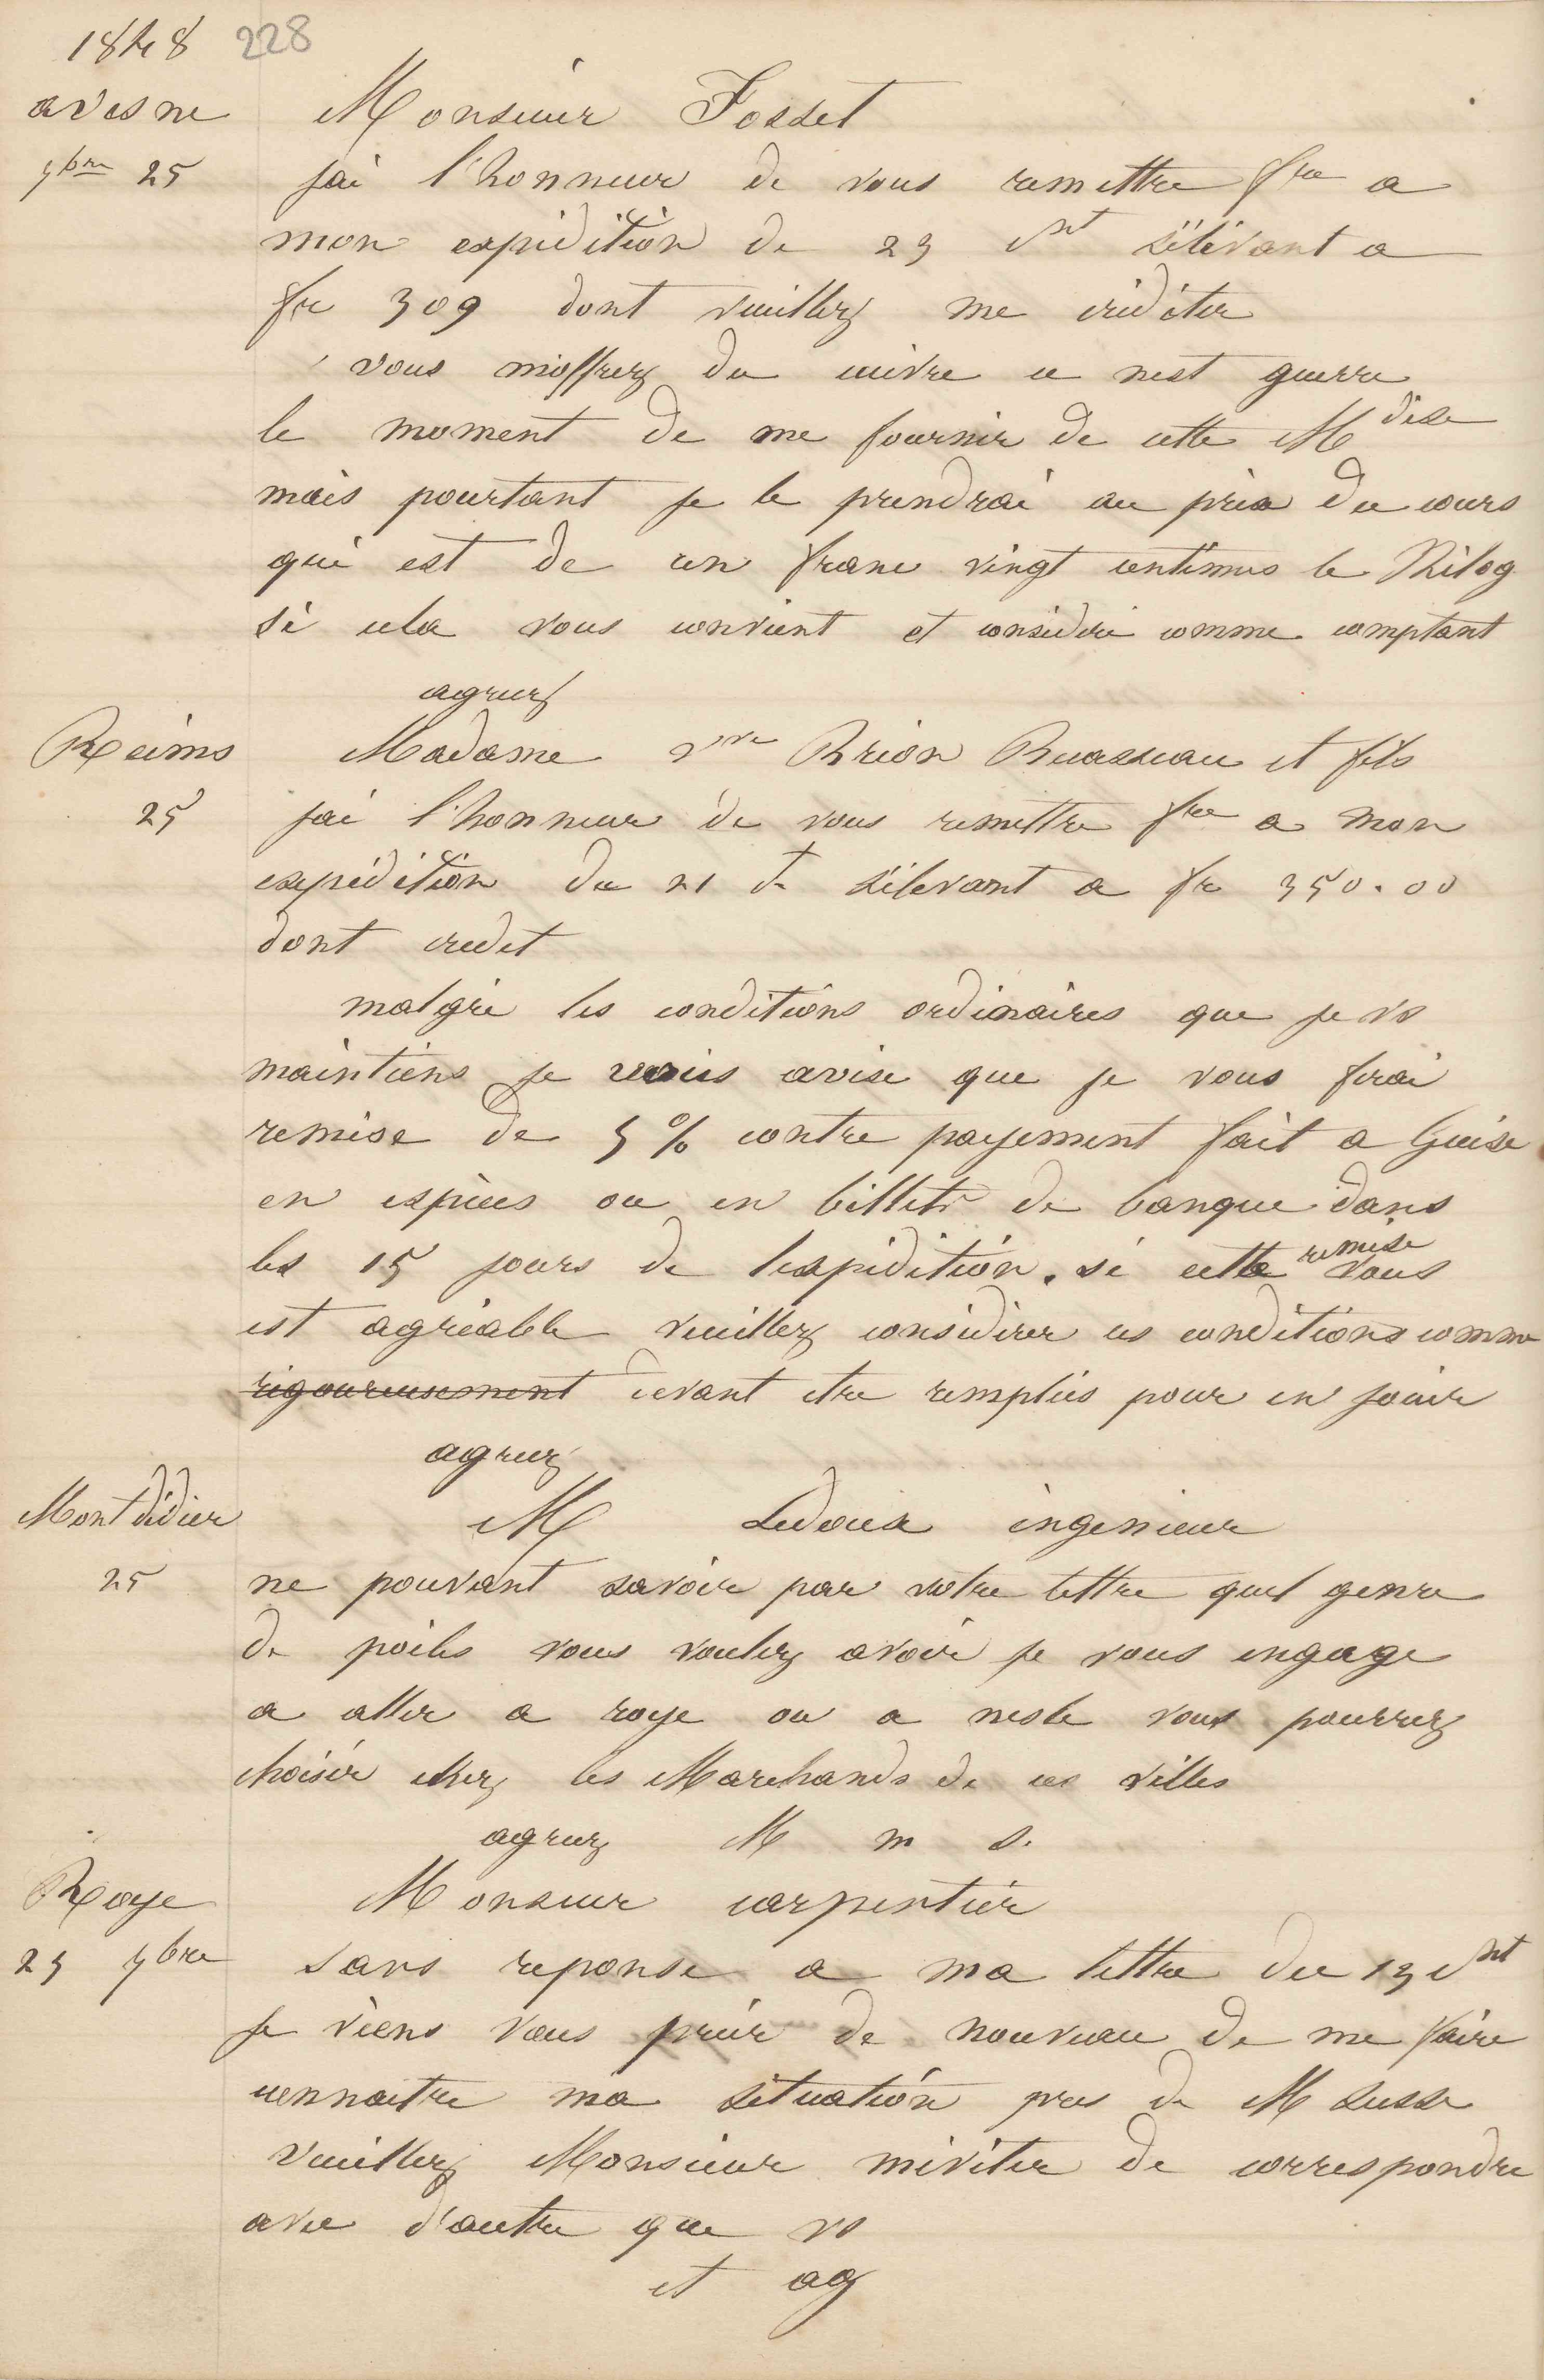 1848 228
avesne Monsieur Fosset
9bre 25 jai l'honneur de vous remettre fre a
mon expédition de 23 ct s'élévant a
fr 309 dont veuillez me créditer
vous m'offrez du cuivre ce nest guerre
le moment de me fournir de cette Mdise
mais pourtant je le prendrai au prix du cours
qui est de un franc vingt centimes le Kilog
si cela vous convient et considéré comme comptant
agreez
Reims Madame vve Brion et fils
25 jai l'honneur de vous remettre fre a mon
expédition du 21 ct s'élevant a fr 350.00
dont credit
malgré les conditions ordinaires que je vs
maintiens je vous avise que je vous ferai
remise de 5 % contre payement fait a Guise
en espèces ou en billets de banque dans
les 15 jours de lexpédition. si cette remise vous
est agréable veuillez considérer ces conditions comme
rigoureusement devant etre remplies pour en jouir
agreez
Montdidier M Ledoux ingenieur
25 ne pouvant savoir par votre lettre quel genre
de poeles vous voulez avoir je vous engage
a aller a roye ou a nesle vous pourrez
choisir chez les Marchands de ces villes
agreez M m s.
Roye Monsieur carpentier
25 9bre sans reponse a ma lettre du 13 ct
je viens vous prier de nouveau de me faire
connaitre ma situation pres de M Susse
veuillez Monsieur méviter de correspondre
avec d'autre que vs
et ag